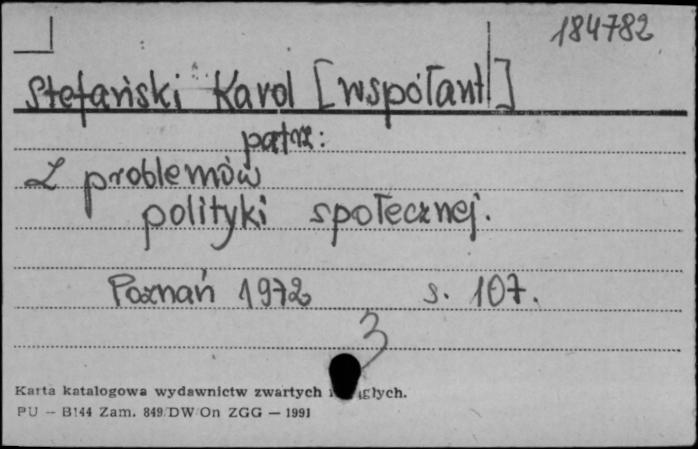 184782
Stefański Karol [współaut]
patrz:
Z problemów
polityki społecznej.
Poznań 1972 s. 107.
3
Karta katalogowa wydawnictw zwartych i ciągłych.
PU — B144 Zam. 849/DW/On ZGG — 1991